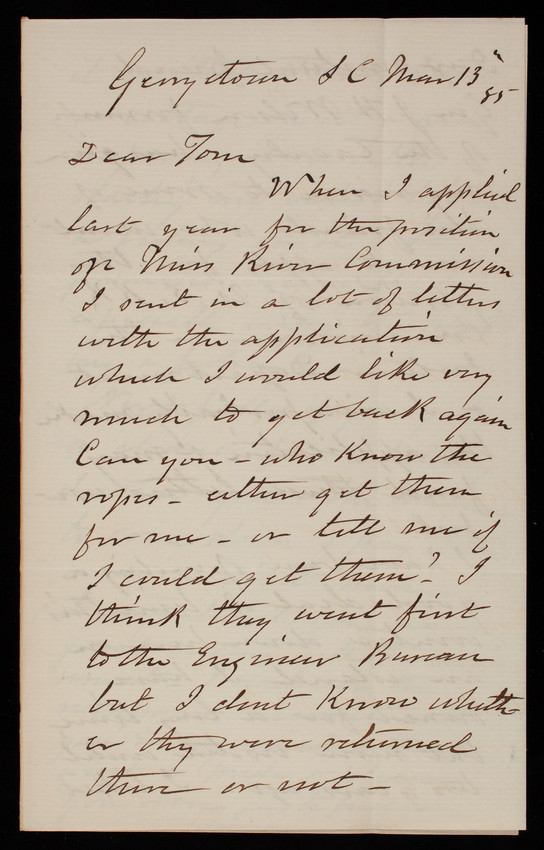 Georgetown S C Mar 13th
85
Dear Tom
When I applied
last year for the position
of Miss River Commission
I sent in a lot of letters
with the application
which I would like very
much to get back again
Can you - who know the
ropes - either get them
for me - or tell me if
I could get them? I
think they went first
to the Engineer Bureau
but I dont know wheth-
er they were returned
there or not -